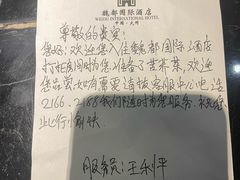 魏都国际酒店
WEIDU INTERNATIONAL HOTEL
中国·大同
尊敬的贵宾:
您好:欢迎您入住魏都国际酒店
打扫房间时为您准备了苦荞茶,欢迎
您品尝如有需要请拨客服中心电话
2166、2168我们随时为您服务.祝您
业心行愉快
服务员:王利平